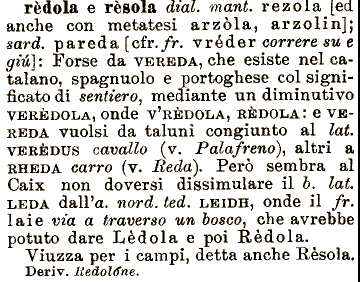 rèdola e rèsola dial. mant. rezola [ed
anche con metatesi arzòla, arzolin];
sard. pareda [cfr. fr. vréder correre su e
giú]: Forse da VEREDA, che esiste nel ca-
talano, spagnuolo e portoghese col signi-
ficato di sentiero, mediante un diminutivo
VERÈDOLA, onde V'RÈDOLA, RÈDOLA: e VE-
REDA vuolsi da taluni congiunto al lat.
VERÈDUS cavallo (v. Palafreno), altri a
RHEDA carro (v. Reda). Però sembra al
Caix non doversi dissimulare il b. lat.
LEDA dall'a. nord. ted. LEIDH, onde il fr.
laie via a traverso un bosco, che avrebbe
potuto dare Lèdola e poi Rèdola.
Viuzza per i campi, detta anche Rèsola.
Deriv. Redolóne.